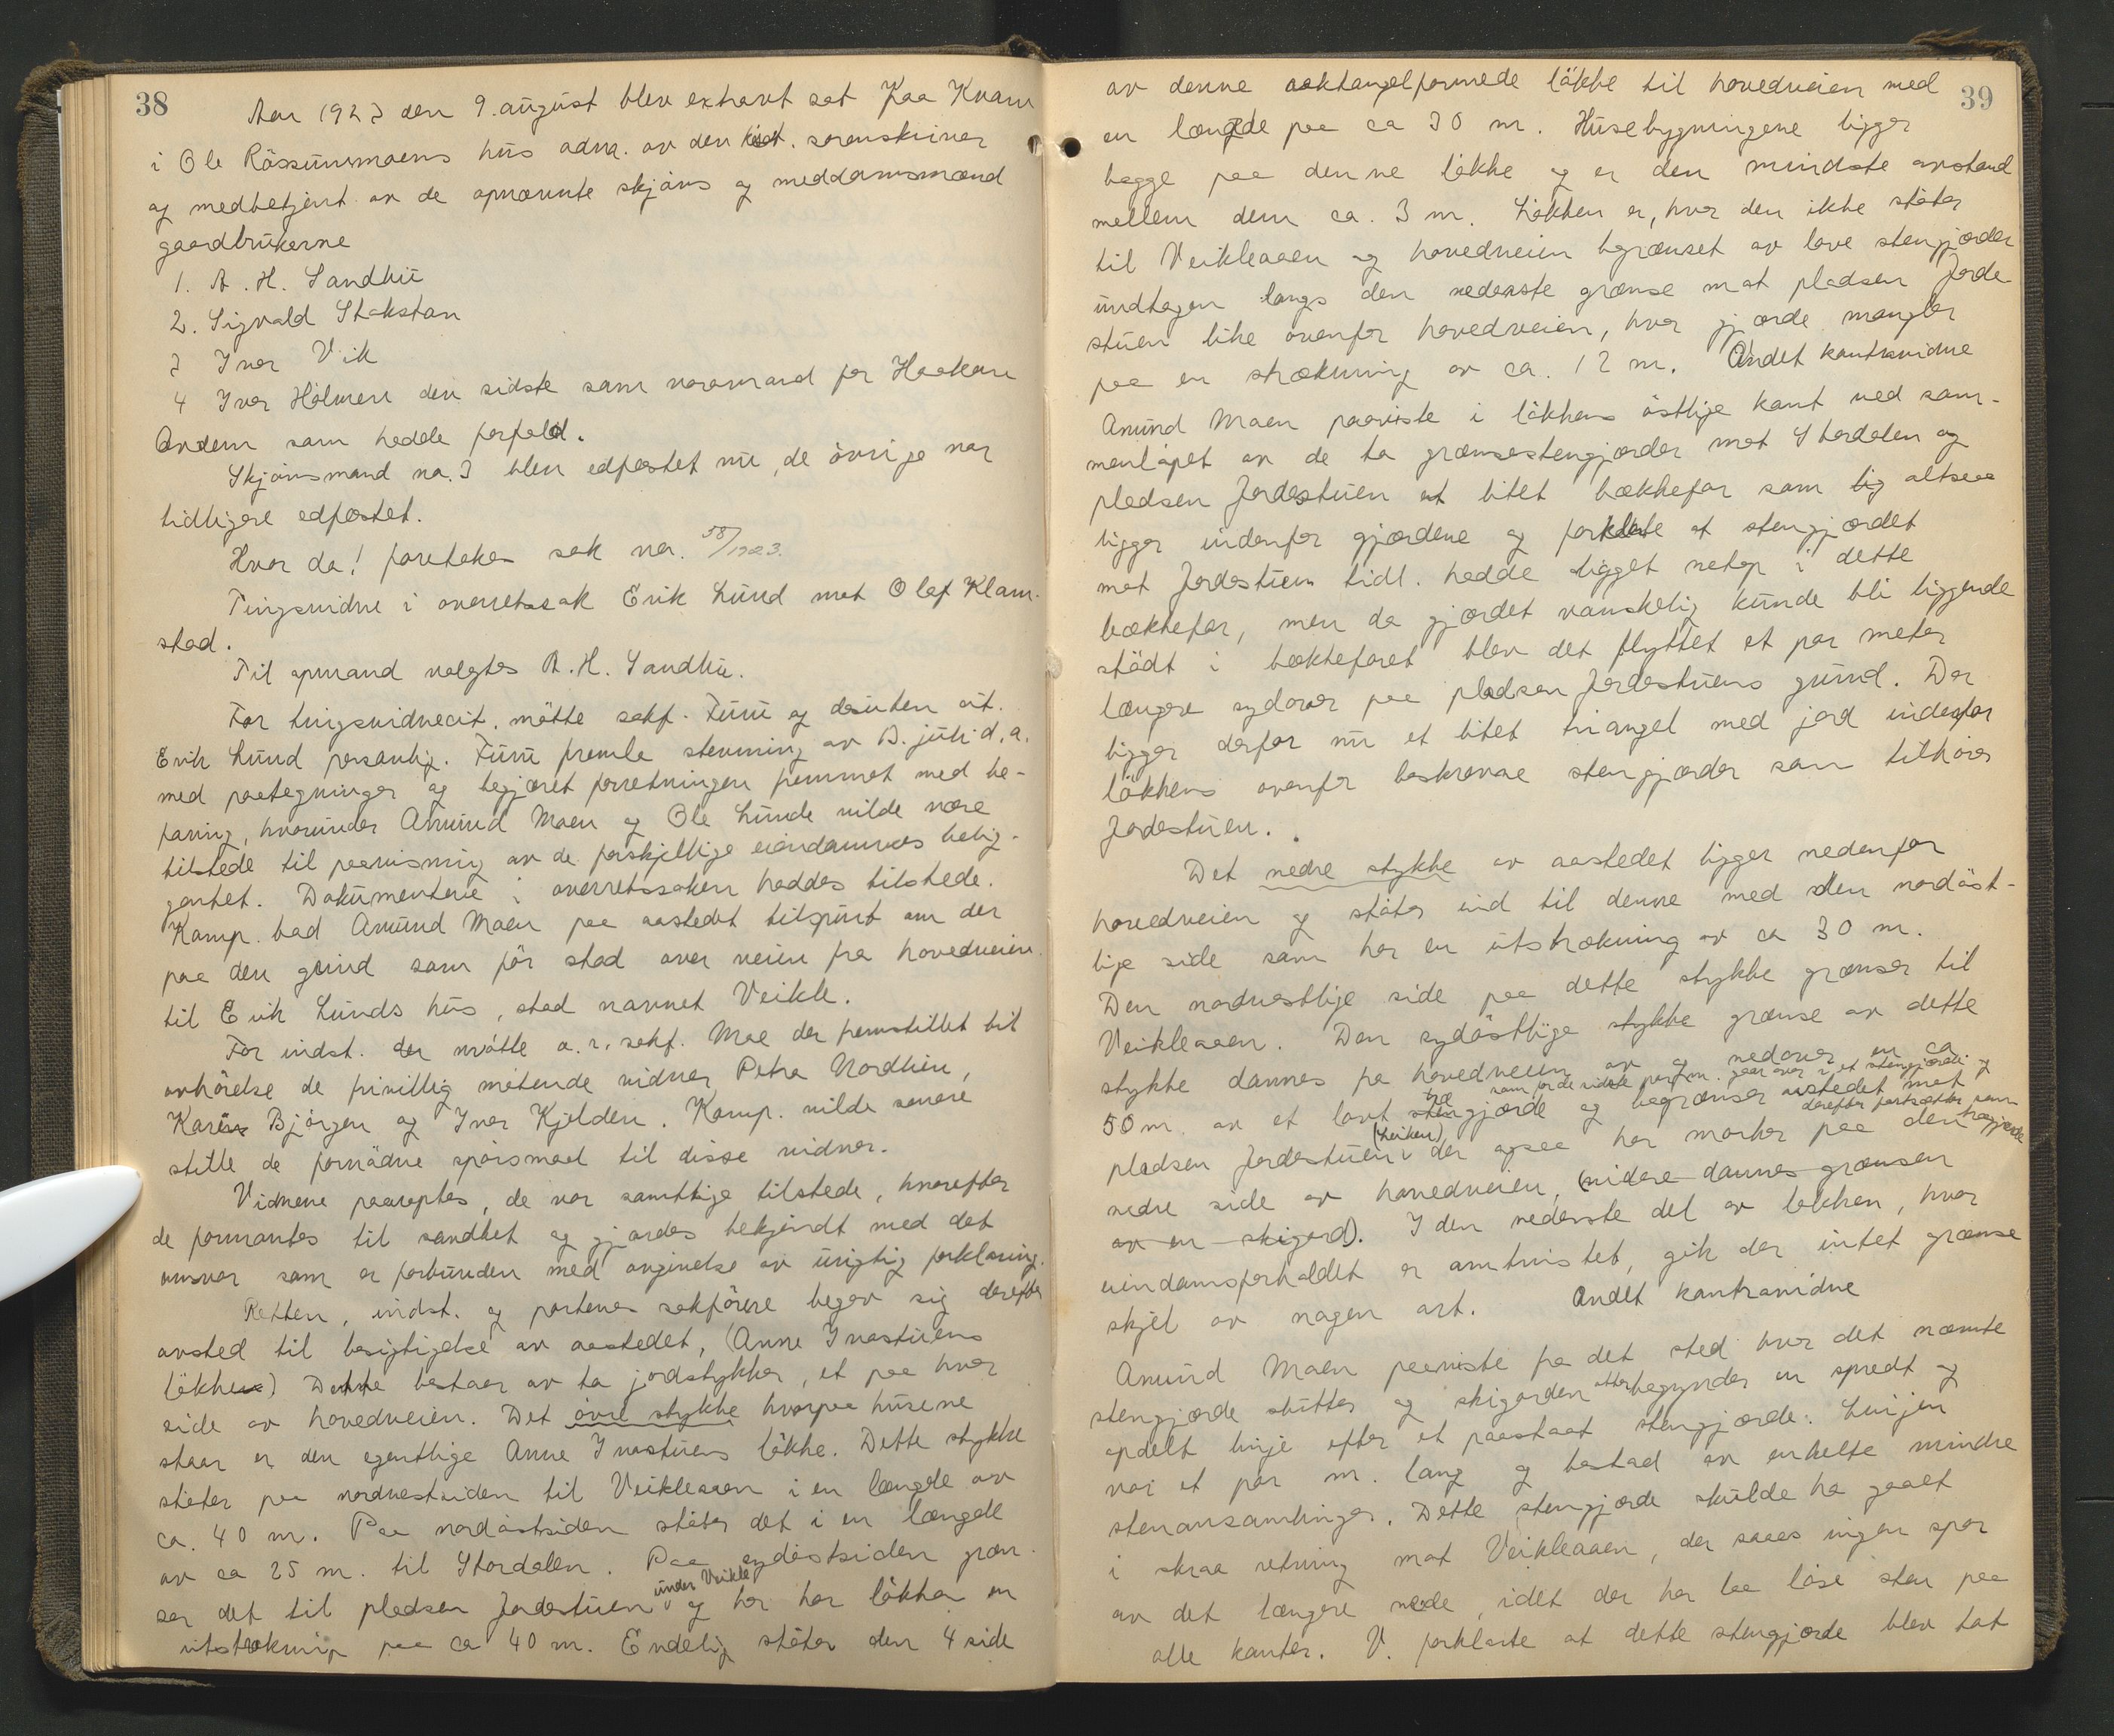 38
Aar 1923 den 9. august blev extrart sat paa Kvam
i Ole Rössummoens hus adm. av den konst. sorenskriver
og medbetjent av de opnævnte skjöns og meddomsmænd
gaardbrukerne
1. A. H. Sandbu
2. Sigvald Stakston
3 Iver Vik
4 Iver Holmen den sidste som varamand for Haakon
Andem som hadde forfald.
Skjönsmand no. 3 blev edfæstet nu, de övrige var
tidligere edfæstet.
Hvor da! foretokes sak nr. 58/1923.
Tingsvidne i overretssak Erik Lund mot Olaf Klom-
stad.
Til opmand valgtes A. H. Sandbu.
For tingsvidnecit. mötte sakf. Furu og desuten cit.
Erik Lund personlig. Furu fremla stevning av 13. juli d. a.
med paategninger og begjæret forretningen fremmet med be-
faring, hvorunder Amund Moen og Ole Lunde vilde være
tilstede til paavisning av de forskjellige eiendommers belig-
genhet. Dokumentene i overretssaken haddes tilstede.
Komp. bad Amund Moen paa aastedet tilspurt om der
paa den grind som för stod over veien fra hovedveien
til Erik Lunds hus, stod navnet Veikle.
For indst. der mötte o. r. sakf. Moe der fremstillet til
avhörelse de frivillig mötende vidner Petra Nordlien,
Karen Bjørgen og Iver Kjelden. Komp. vilde senere
stille de fornødne spörsmaal til disse vidner.
Vidnene paaroptes, de var samtlige tilstede, hvorefter
de formantes til sandhet og gjordes bekjendt med det
ansvar som er forbunden med avgivelse av urigtig forklaring.
Retten, indst. og partenes sakförere begav sig derefter
avsted til besigtigelse av aastedet, (Anne Ivastuens
løkke) Dette bestaar av to jordstykker, et paa hver
side av hovedveien. Det övre stykke hvorpaa husene
staar er den egentlige Anne Ivastuens løkke. Dette stykke
støter paa nordvestsiden til Veikleaaen i en længde av
ca. 40 m. Paa nordöstsiden støter det i en længde
av ca 25 m. til Stordalen. Paa sydöstsiden græn-
ser det til pladsen Jordestuen under Veikle og her har løkken en
utstrækning paa ca 40 m. Endelig støter den 4 side
39
av denne rektangelformede løkke til hovedveien med
en længde paa ca 30 m. Husebygningene ligger
begge paa denne løkke og er den mindste avstand
mellem dem ca. 3 m. Løkken er, hvor den ikke støter
til Veikleaaen og hovedveien begrænset av lave stengjærder
undtagen langs den nederste grænse mot pladsen Jorde-
stuen like ovenfor hovedveien, hvor gjærde mangler
paa en strækning av ca. 12 m. Andet kontravidne
Amund Moen paaviste i løkkens østlige kant ved sam-
menløpet av de to grænsestengjærder mot Stordalen og
pladsen Jordestuen et litet bækkefar som lig altsaa
ligger indenfor gjærdene og forklarte at stengjærdet
mot Jordestuen tidl. hadde ligget netop i dette
bækkefar, men da gjærdet vanskelig kunde bli liggende
stödt i bækkefaret blev det flyttet et par meter
længere sydover paa pladsen Jordestuens grund. Der
ligger derfor nu et litet triangel med jord indenfor
løkkens ovenfor beskrevne stengjærder som tilhører
Jordestuen.
Det nedre stykke av aastedet ligger nedenfor
hovedveien og støter ind til denne med den nordöst-
lige side som har en utstrækning av ca 30 m.
Den nordvestlige side paa dette stykke grænser til
Veikleaaen. Den sydöstlige stykke grænse av dette
stykke dannes fra hovedveien av og nedover en ca
50 m. av et lavt stengjærde som for de sidste par m. gaar over i et stengjærde og og begrænser aastedet mot
derefter fortsætter som trægjærde
pladsen Jordestuen (Veikle) der ogsaa har marker paa den
nedre side av hovedveien, (videre dannes grænsen
av en skigard). I den nederste del av løkken, hvor
eiendomsforholdet er omtvistet, gik der intet grænse-
skjel av nogen art. Andet kontravidne
Amund Moen paaviste fra det sted hvor det nævnte
stengjærde slutter og skigarden atter begynder en spredt og
opdelt linje efter et paastaat stengjærde. Linjen
var et par m. lang og bestod av enkelte mindre
stenansamlinger. Dette stengjærde skulde ha gaaet
i skraa retning mot Veikleaaen, der saaes ingen spor
av det længere nede, idet der her laa löse sten paa
alle kanter. V. forklarte at dette stengjærde blev tat